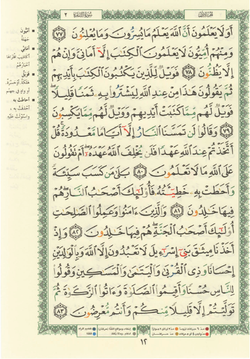 أَوَلَا يَعْلَمُونَ أَنَّ اللَّهَ يَعْلَمُ مَا يُسِرُّونَ وَمَا يُعْلِنُونَ
٧٧ وَمِنْهُمْ أُمِّيُّونَ لَا يَعْلَمُونَ الْكِتَابَ إِلَّا أَمَانِيَّ وَإِنْ هُمْ
إِلَّا يَظُنُّونَ ٧٨ فَوَيْلٌ لِلَّذِينَ يَكْتُبُونَ الْكِتَابَ بِأَيْدِيهِمْ
ثُمَّ يَقُولُونَ هَٰذَا مِنْ عِنْدِ اللَّهِ لِيَشْتَرُوا بِهِ ثَمَنًا قَلِيلًا
فَوَيْلٌ لَهُمْ مِمَّا كَتَبَتْ أَيْدِيهِمْ وَوَيْلٌ لَهُمْ مِمَّا يَكْسِبُونَ
٧٩ وَقَالُوا لَنْ تَمَسَّنَا النَّارُ إِلَّا أَيَّامًا مَعْدُودَةً قُلْ
أَتَّخَذْتُمْ عِنْدَ اللَّهِ عَهْدًا فَلَنْ يُخْلِفَ اللَّهُ عَهْدَهُ أَمْ تَقُولُونَ
عَلَى اللَّهِ مَا لَا تَعْلَمُونَ ٨٠ بَلَىٰ مَنْ كَسَبَ سَيِّئَةً
وَأَحَاطَتْ بِهِ خَطِيئَتُهُ فَأُولَٰئِكَ أَصْحَابُ النَّارِ هُمْ
فِيهَا خَالِدُونَ ٨١ وَالَّذِينَ آمَنُوا وَعَمِلُوا الصَّالِحَاتِ
أُولَٰئِكَ أَصْحَابُ الْجَنَّةِ هُمْ فِيهَا خَالِدُونَ ٨٢ وَإِذْ
أَخَذْنَا مِيثَاقَ بَنِي إِسْرَائِيلَ لَا تَعْبُدُونَ إِلَّا اللَّهَ وَبِالْوَالِدَيْنِ
إِحْسَانًا وَذِي الْقُرْبَىٰ وَالْيَتَامَىٰ وَالْمَسَاكِينِ وَقُولُوا
لِلنَّاسِ حُسْنًا وَأَقِيمُوا الصَّلَاةَ وَآتُوا الزَّكَاةَ ثُمَّ
تَوَلَّيْتُمْ إِلَّا قَلِيلًا مِنْكُمْ وَأَنْتُمْ مُعْرِضُونَ ٨٣
١٢